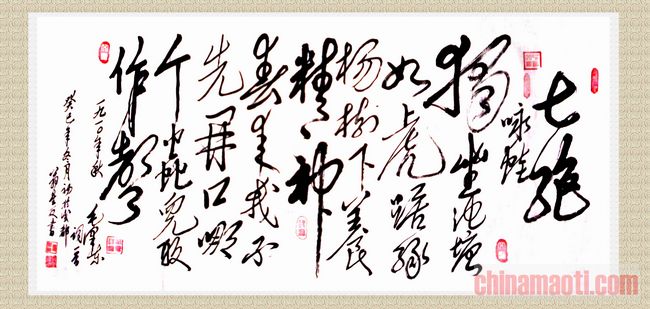 七绝
咏蛙
獨坐池塘
如虎踞绿
杨樹下养
精神
春来我不
先开口哪
个虫兒敢
作聲
一九一〇年秋
毛澤东词一首
癸巳年冬月
chinamaoti.com